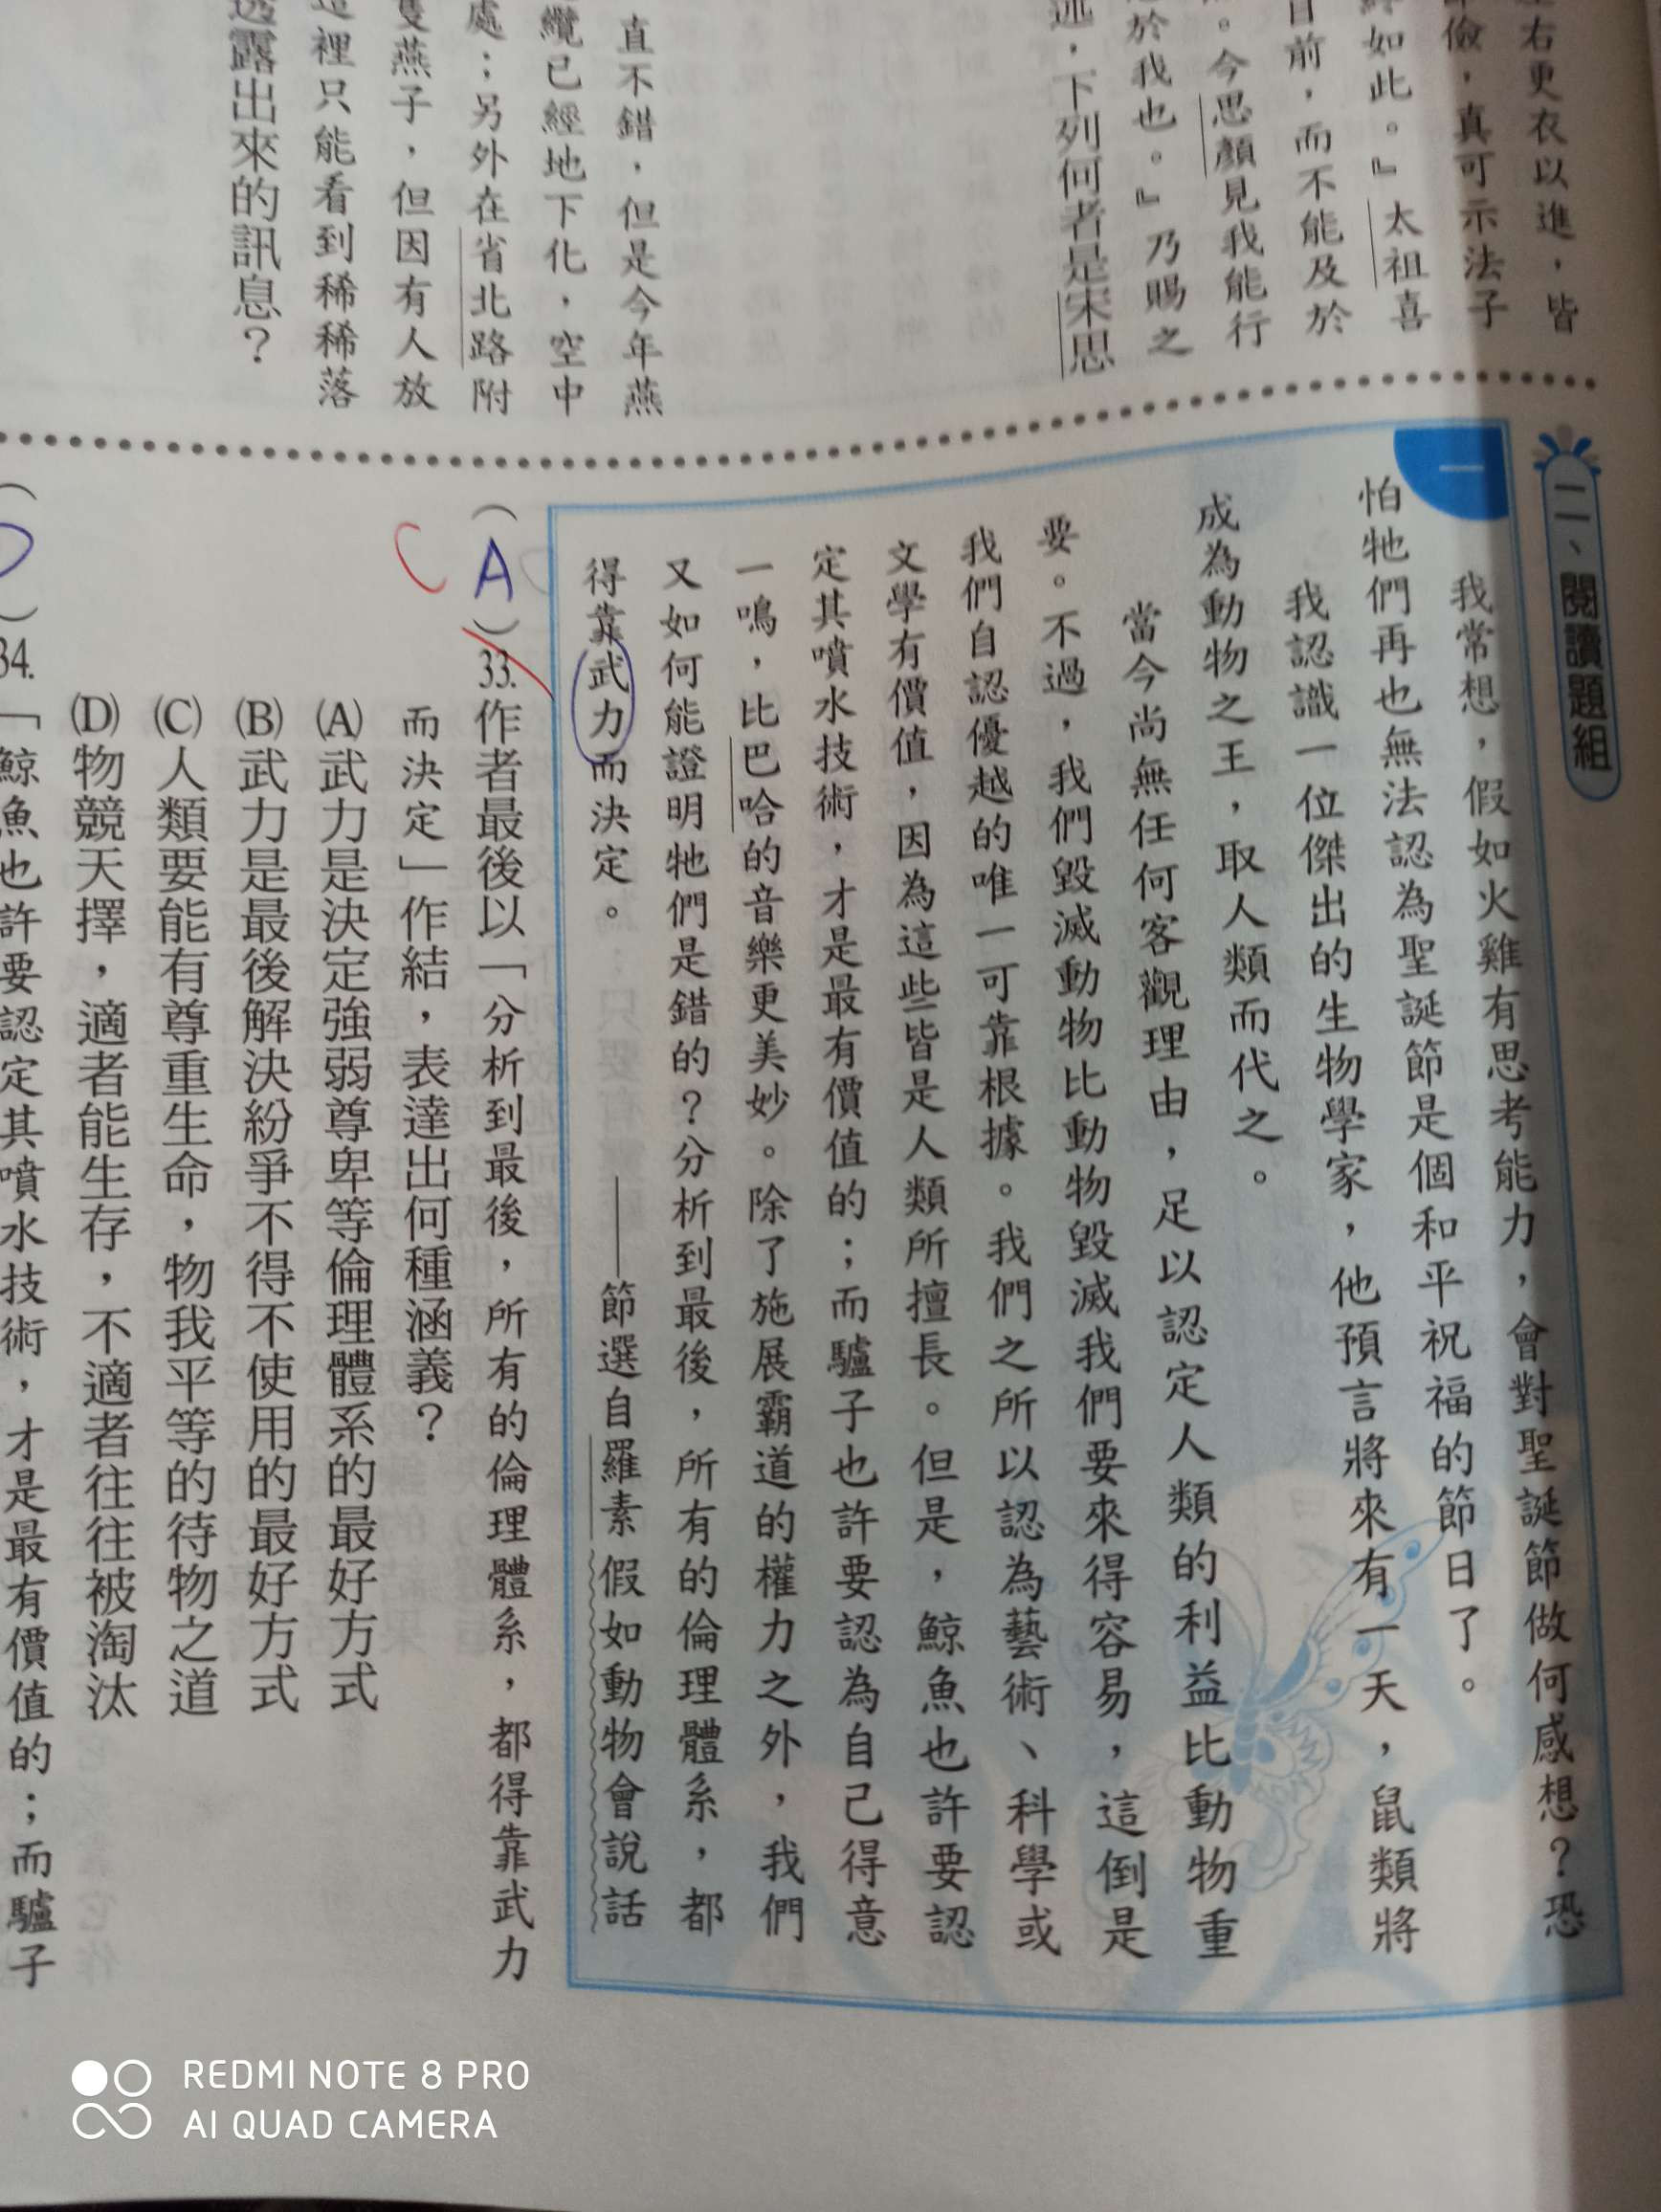 右更衣以進，皆
儉，真可示法子
如此。』太祖喜
目前，而不能及於
。今思顏見我能行
於我也。』乃賜之
述，下列何者是宋思
直不錯，但是今年燕
纜已經地下化，空中
處；另外在省北路附
隻燕子，但因有人放
這裡只能看到稀稀落
透露出來的訊息？
二、閱讀題組
一
我常想，假如火雞有思考能力，會對聖誕節做何感想？恐
怕牠們再也無法認為聖誕節是個和平祝福的節日了。
我認識一位傑出的生物學家，他預言將來有一天，鼠類將
成為動物之王，取人類而代之。
當今尚無任何客觀理由，足以認定人類的利益比動物重
要。不過，我們毀滅動物比動物毀滅我們要來得容易，這倒是
我們自認優越的唯一可靠根據。我們之所以認為藝術、科學或
文學有價值，因為這些皆是人類所擅長。但是，鯨魚也許要認
定其噴水技術，才是最有價值的；而驢子也許要認為自己得意
一鳴，比巴哈的音樂更美妙。除了施展霸道的權力之外，我們
又如何能證明牠們是錯的？分析到最後，所有的倫理體系，都
得靠武力而決定。
——節選自羅素假如動物會說話
（A）33.作者最後以「分析到最後，所有的倫理體系，都得靠武力
而決定」作結，表達出何種涵義？
C
(A)武力是決定強弱尊卑等倫理體系的最好方式
(B)武力是最後解決紛爭不得不使用的最好方式
(C)人類要能有尊重生命，物我平等的待物之道
(D)物競天擇，適者能生存，不適者往往被淘汰
（ ）34.「鯨魚也許要認定其噴水技術，才是最有價值的；而驢子
REDMI NOTE 8 PRO
AI QUAD CAMERA